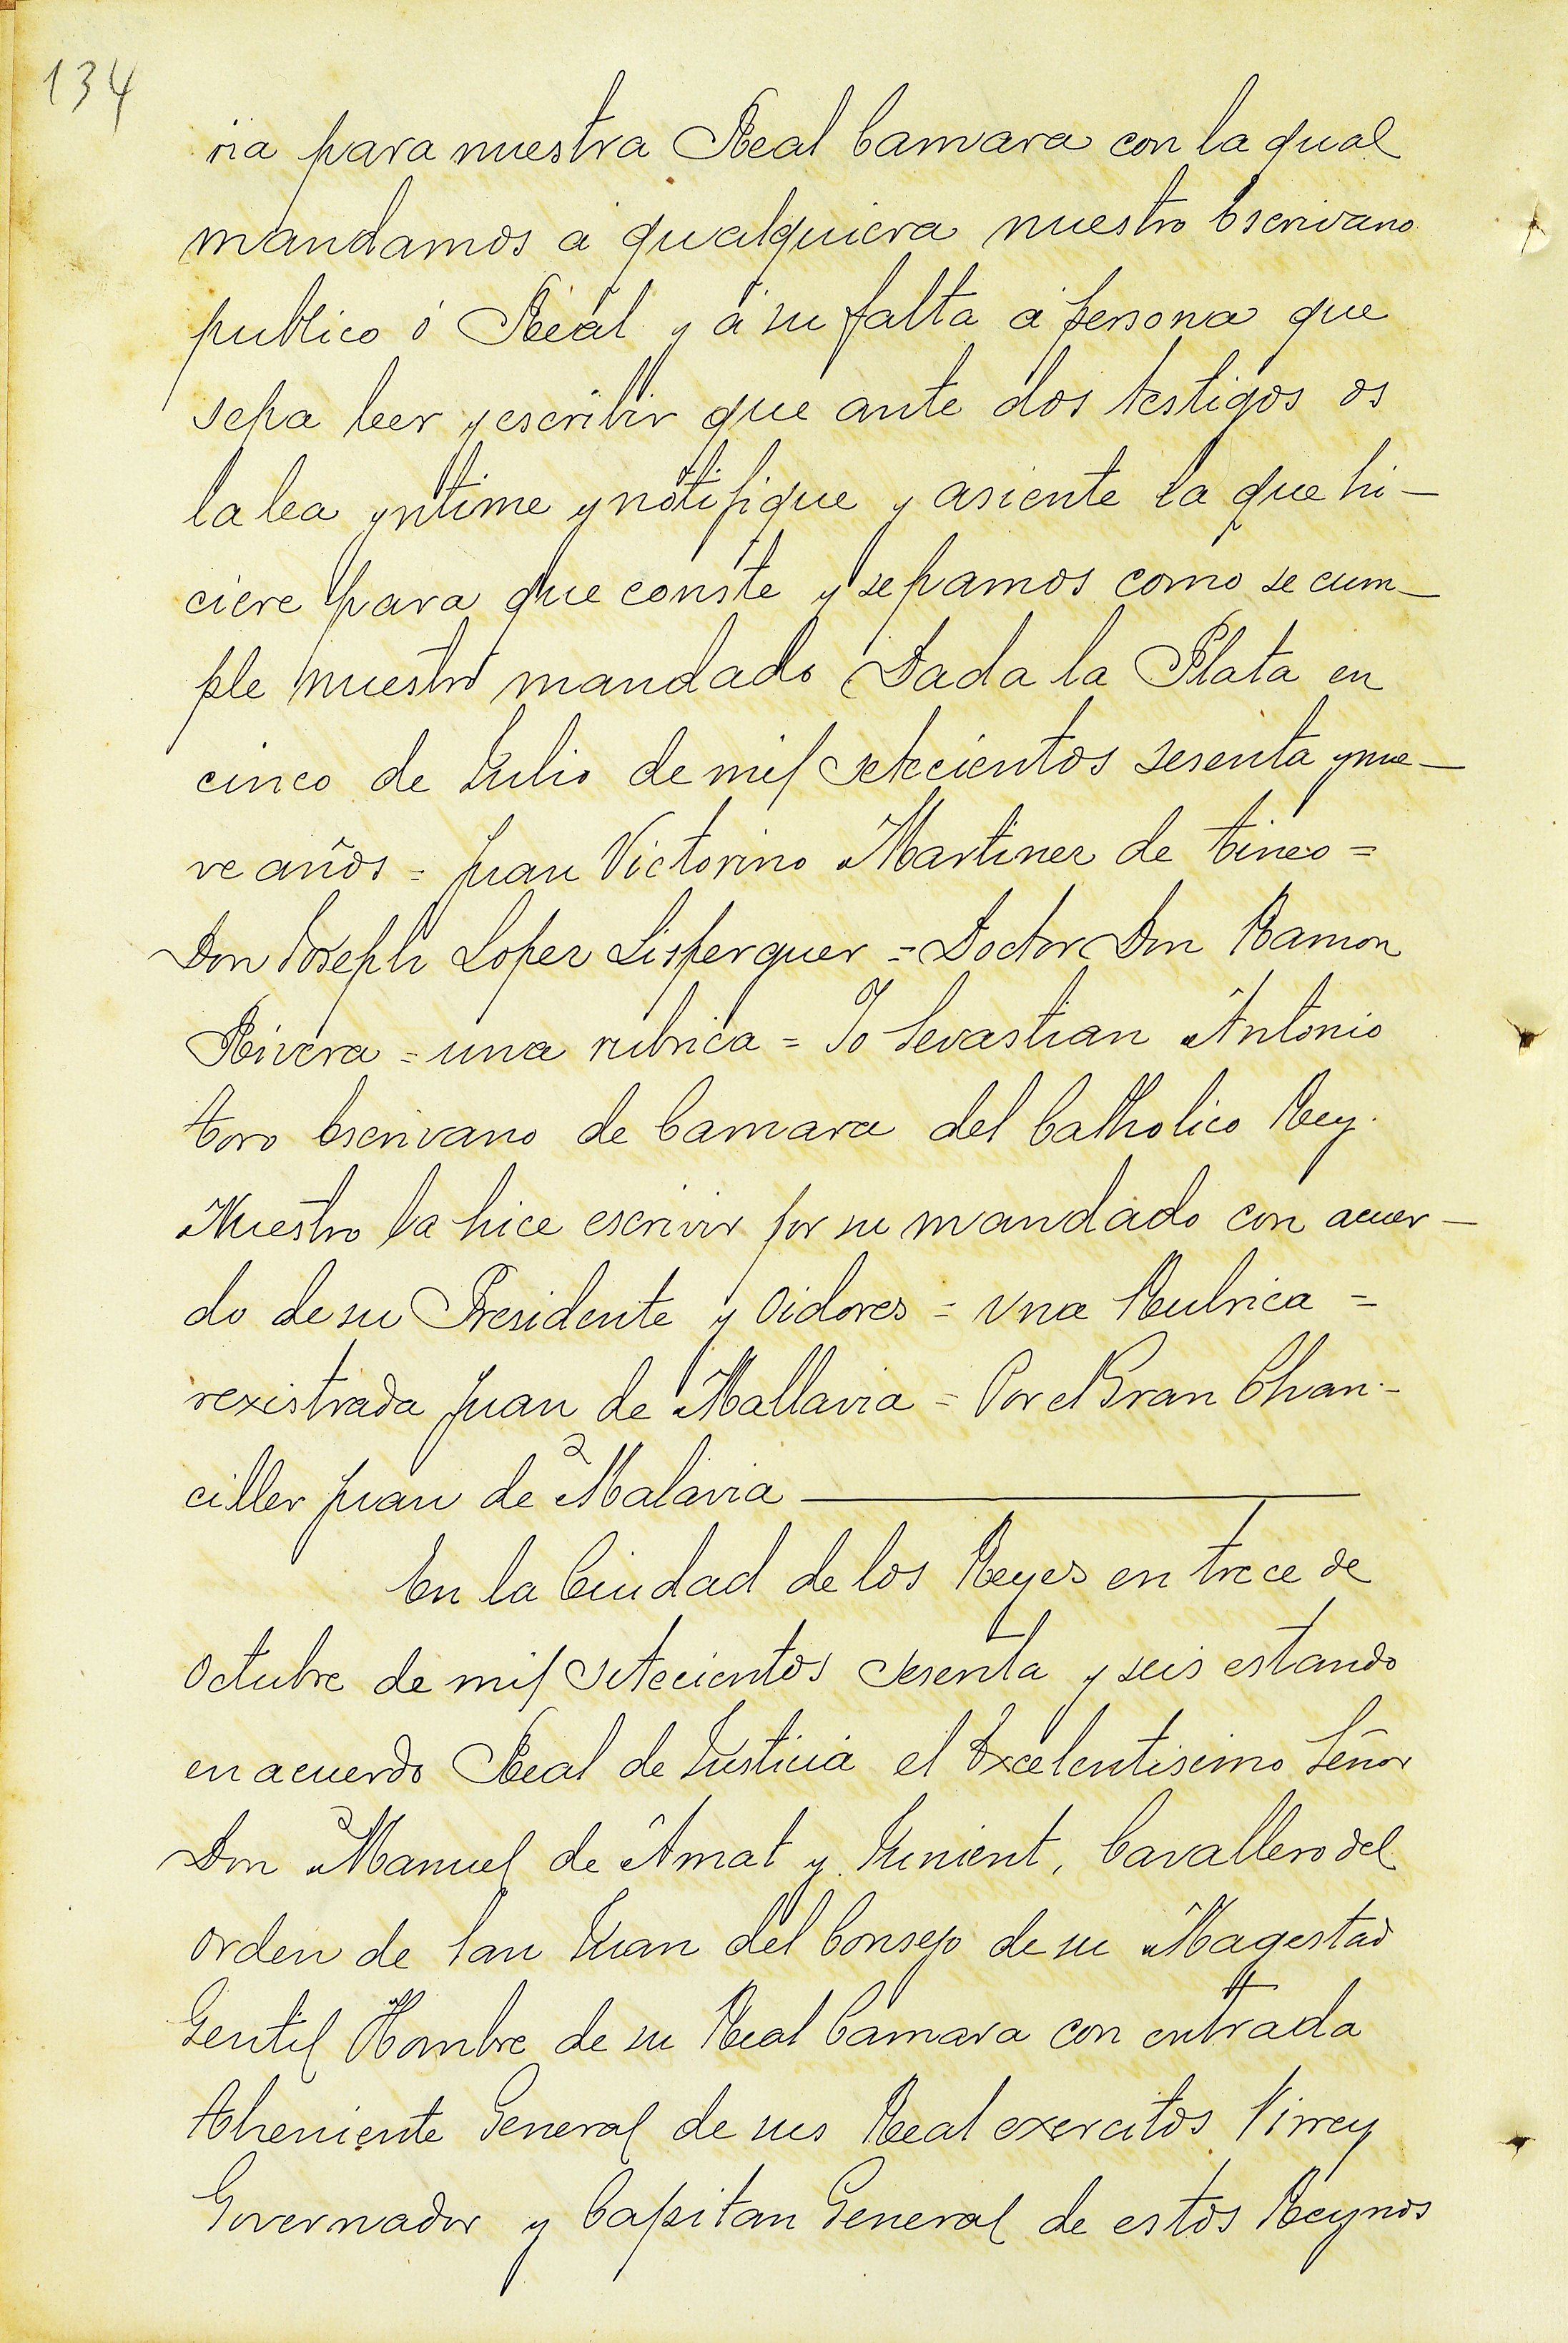 134
ria para nuestra Real Camara con la qual
mandamos a qualquiera nuestro Escrivano
publico ó Real y á su falta a persona que
sepa leer y escribir que ante dos testigos os
la lea yntime y notifique y asiente la que hi-
ciere para que conste y sepamos como se cum-
ple nuestro mandado Dada la Plata en
cinco de Julio de mil setecientos sesenta y nue-
ve años = Juan Victorino Martinez de Tineo =
Don Joseph Lopez Lisperguer = Doctor Don Ramon
Rivera = una rubrica = Yo Sevastian Antonio
Toro Escrivano de Camara del Catholico Rey.
Nuestro la hice escrivir por su mandado con acuer-
do de su Presidente y Oidores = Una Rubrica =
rexistrada Juan de Mallavia = Por el Gran Chan-
ciller Juan de Malavia
En la Ciudad de los Reyes en trece de
Octubre de mil setecientos sesenta y seis estando
en acuerdo Real de Justicia el Excelentisimo Señor
Don Manuel de Amat y Junient, Cavallero del
orden de San Juan del Consejo de su Magestad
Gentil Hombre de su Real Camara con entrada
Theniente General de sus Real exercitos Virrey
Governador y Capitan General de estos Reynos